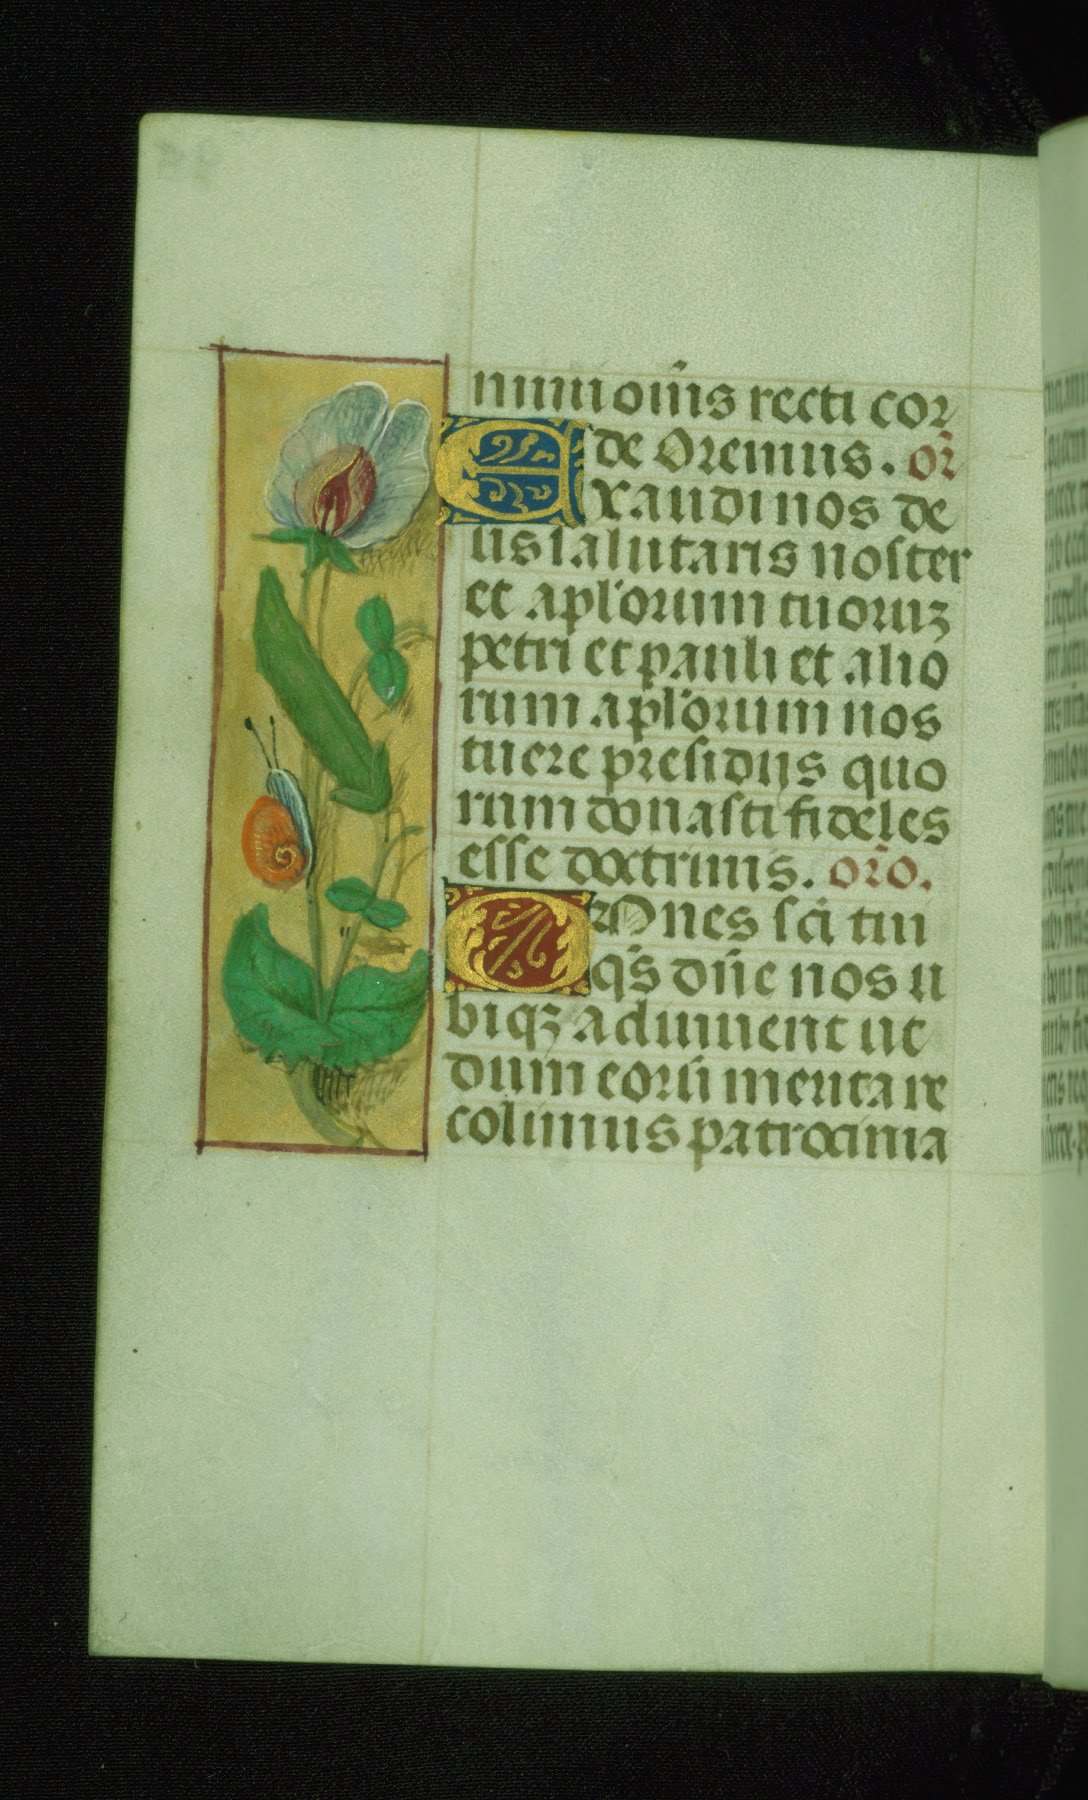 mini om̄s recti cor
de Oremus. or̄
Exaudi nos de
us salutaris noster
et apl'orum tuoruꝫ
petri et pauli et alio
rum apl'orum nos
tuere presidiis quo
rum donasti fideles
esse doctrinis. or̄o.
OMnes sc̄i tui
qs̄ dn̄e nos u
biqꝫ adiuuent ut
dum eorū merita re
colimus patrocinia